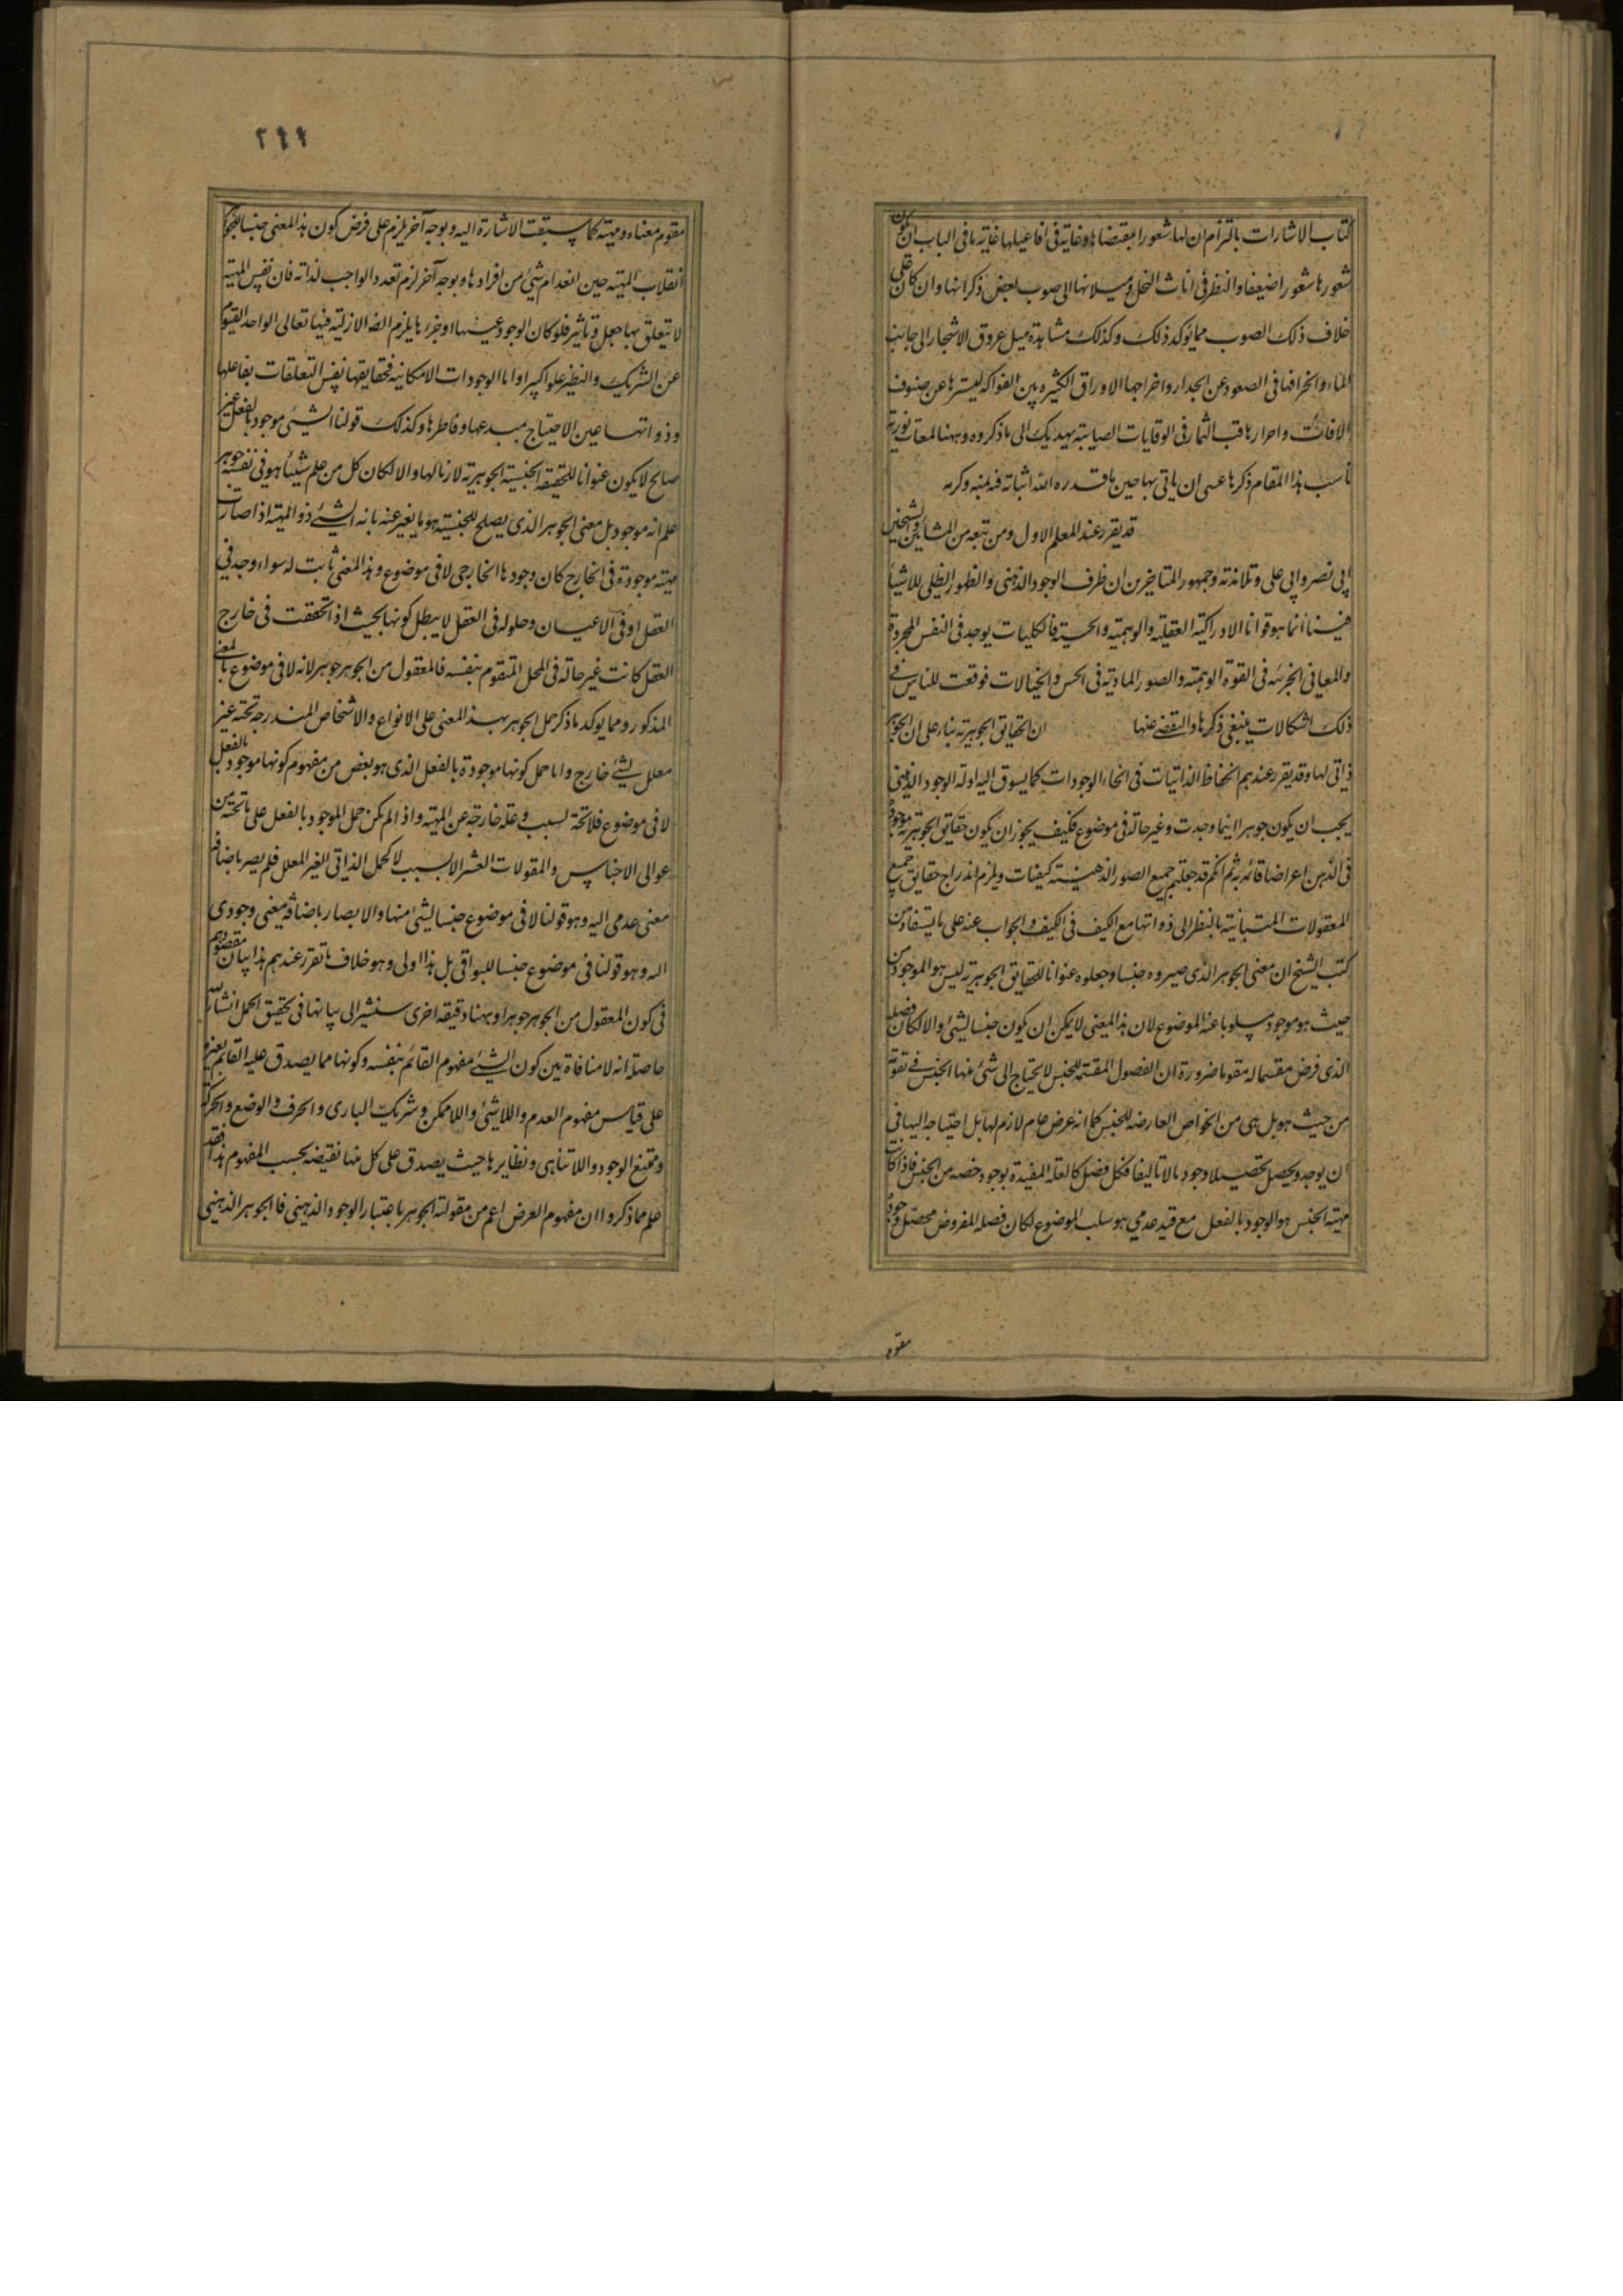 كتاب الاشارات بالتزام ان لها شعورا بمقتضاها وغاية فى افاعيلها غاية ما فى الباب ان يكون
شعورها شعورا ضعيفا والنظر فى اناث النخل وميلانها الى صوب بعض ذكرانها وان كان على
خلاف ذلك الصوب مما يؤكد ذلك وكذلك مشاهدة ميل عروق الاشجار الى جانب
الماء وانحرافها فى الصعود عن الجدار واخراجها الاوراق الكثيره بين الفواكه ليسترها عن صنوف
الافات واحرازها لب الثمار فى الوقايات الصاينه يهديك الى ما ذكروه وههنا لمعات نورية
ناسب هذا المقام ذكرها عسى ان ياتى بها حين ما قدره الله اثباته فيه بمنه وكرمه
قد يقرر عند المعلم الاول ومن تبعه من المشائين والشيخين
ابى نصر وابى على وتلامذته وجمهور المتاخرين ان ظرف الوجود الذهنى والظهور الظلى للاشيا
فينا انما هو قوانا الادراكية العقلية والوهمية والحسية فالكليات يوجد فى النفس المجردة
والمعانى الجزئيه فى القوة الوهميه والصور المادية فى الحس والخيالات فوقعت للناس فى
ذلك اشكالات ينبغى ذكرها والتفصى عنها ان الحقايق الجوهرية بناء على ان الجوهر
ذاتى لها وقد يقرر عندهم انحفاظ الذاتيات فى انحاء الوجودات كما يسوق اليه ادلة الوجود الذهنى
يجب ان يكون جوهرا اينما وجدت وغير حالة فى موضوع فكيف يجوز ان يكون حقايق الجوهرية موجودة
فى الذهن اعراضا قائمة به ثم انكم قد جعلتم جميع الصور الذهنية كيفيات ويلزم اندراج حقايق جميع
المعقولات المتباينة بالنظر الى ذواتها مع الكيف فى الكيف والجواب عنه على ما يستفاد من
كتب الشيخ ان معنى الجوهر الذى صيروه جنسا وجعلوه عنوانا للحقايق الجوهرية ليس هو الموجود من
حيث هو موجود مسلوبا عنه الموضوع لان هذا المعنى لا يمكن ان يكون جنسا لشئ والا لكان فصله
الذى فرض مقسما له مقوما ضرورة ان الفصول المقسمة للجنس لا يحتاج الى شئ منها الجنس فى تقومه
من حيث هو بل هى من الخواص العارضه للجنس كما انه عرض عام لازم لها بل احتياجه اليها فى
ان يوجد ويحصل تحصيلا وجوديا لا تاليفا فكل فصل كالعلة المفيدة لوجود حصه من الجنس فاذا كانت
مهية الجنس هو الوجود بالفعل مع قيد عدمى هو سلب الموضوع لكان فصله المفروض محصل وجوده
مقوم
٢٩٩
مقوم معناه ومهيته كما سبقت الاشارة اليه وبوجه آخر يلزم على فرض كون هذا المعنى جنسا للجواهر
انقلاب المهية حين انعدام شئ من افرادها وبوجه آخر لزم تعدد الواجب لذاته فان نفس المهية
لا يتعلق بها جعل وتاثير فلو كان الوجود عينها او جزءها يلزم الضرورة الازلية فيها تعالى الواحد القيوم
عن الشريك والنظير علوا كبيرا واما الوجودات الامكانيه فحقايقها نفس التعلقات بفاعلها
وذواتها عين الاحتياج بمبدعها وفاطرها وكذلك قولنا الشئ موجود بالفعل غير
صالح لا يكون عنوانا للحقيقة الجنسية الجوهرية لازما لها والا لكان كل من علم شيئا هو فى نفسه جوهر
علم انه موجود بل معنى الجوهر الذى يصلح للجنسية هو ما يعبر عنه بانه الشئ ذو المهية اذا صارت
مهيته موجودة فى الخارج كان وجودها الخارجى لا فى موضوع وهذا المعنى ثابت له سواء وجد فى
العقل او فى الاعيان وحلوله فى العقل لا يبطل كونها بحيث اذا تحققت فى خارج
العقل كانت غير حالة فى المحل المتقوم بنفسه فالمعقول من الجوهر جوهر لانه لا فى موضوع بالمعنى
المذكور ومما يوكد ما ذكر حمل الجوهر بهذا المعنى على الانواع والاشخاص المندرجه تحته غير
معلل بشئ خارج واما حمل كونها موجودة بالفعل الذى هو بعض من مفهوم كونها موجود بالفعل
لا فى موضوع فلا محة لسبب وعلة خارجة عن المهية واذا لم يكن حمل الموجود بالفعل على ما تحته من
عوالى الاجناس والمقولات العشر الا بسبب لا كحمل الذاتى الغير المعلل فلم يصر باضافه
معنى عدمى اليه وهو قولنا لا فى موضوع جنسا لشئ منها والا لصار باضافه معنى وجودى
اليه وهو قولنا فى موضوع جنسا للبواقى بل هذا اولى وهو خلاف ما تقرر عندهم هذا بيان مقصودهم
فى كون المعقول من الجوهر جوهرا وههنا دقيقة اخرى سنشير الى بيانها فى تحقيق الحمل انشاء الله
حاصله انه لا منافاة بين كون الشئ مفهوم القائم بنفسه وكونها مما يصدق عليه القائم بغيره
على قياس مفهوم العدم واللاشئ واللاممكن وشريك البارى والحرف والوضع والحركة
وممتنع الوجود واللاتناهى ونظايرها حيث يصدق على كل منها نقيضه بحسب المفهوم هذا فقد
علم مما ذكروا ان مفهوم العرض اعم من مقولة الجوهر باعتبار الوجود الذهنى فالجوهر الذهنى